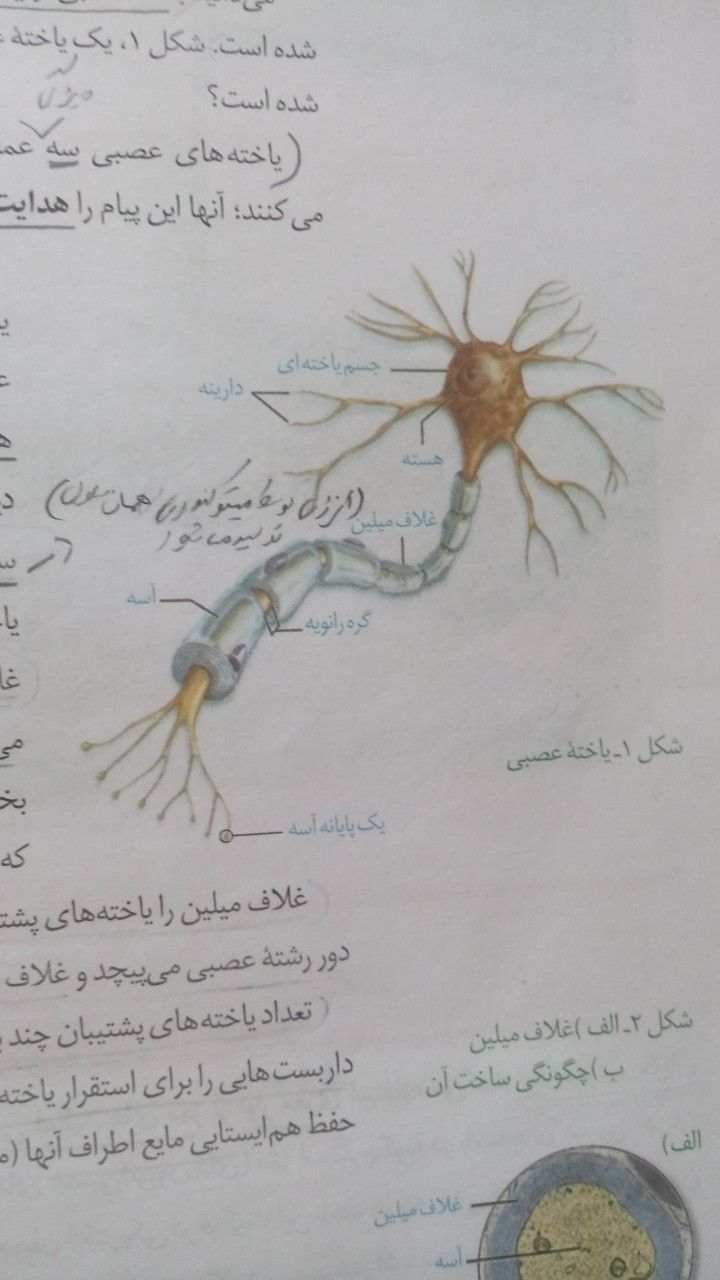 شده است. شکل ۱، یک یاخته
شده است؟
(یاخته‌های عصبی سه عمـ
می‌کنند؛ آنها این پیام را هدایت
جسم یاخته‌ای
دارینه
هسته
(انرژی توسط میتوکندری همان سلول)
تولید می‌شود
غلاف میلین
آسه
گره رانویه
شکل ۱ـ یاختهٔ عصبی
یک پایانه آسه
که
غلاف میلین را یاخته‌های پشتـ
دور رشتهٔ عصبی می‌پیچد و غلاف
(تعداد یاخته‌های پشتیبان چند
داربست‌هایی را برای استقرار یاخته
حفظ هم‌ایستایی مایع اطراف آنها (
شکل ۲ـ الف) غلاف میلین
ب) چگونگی ساخت آن
الف)
غلاف میلین
آسه